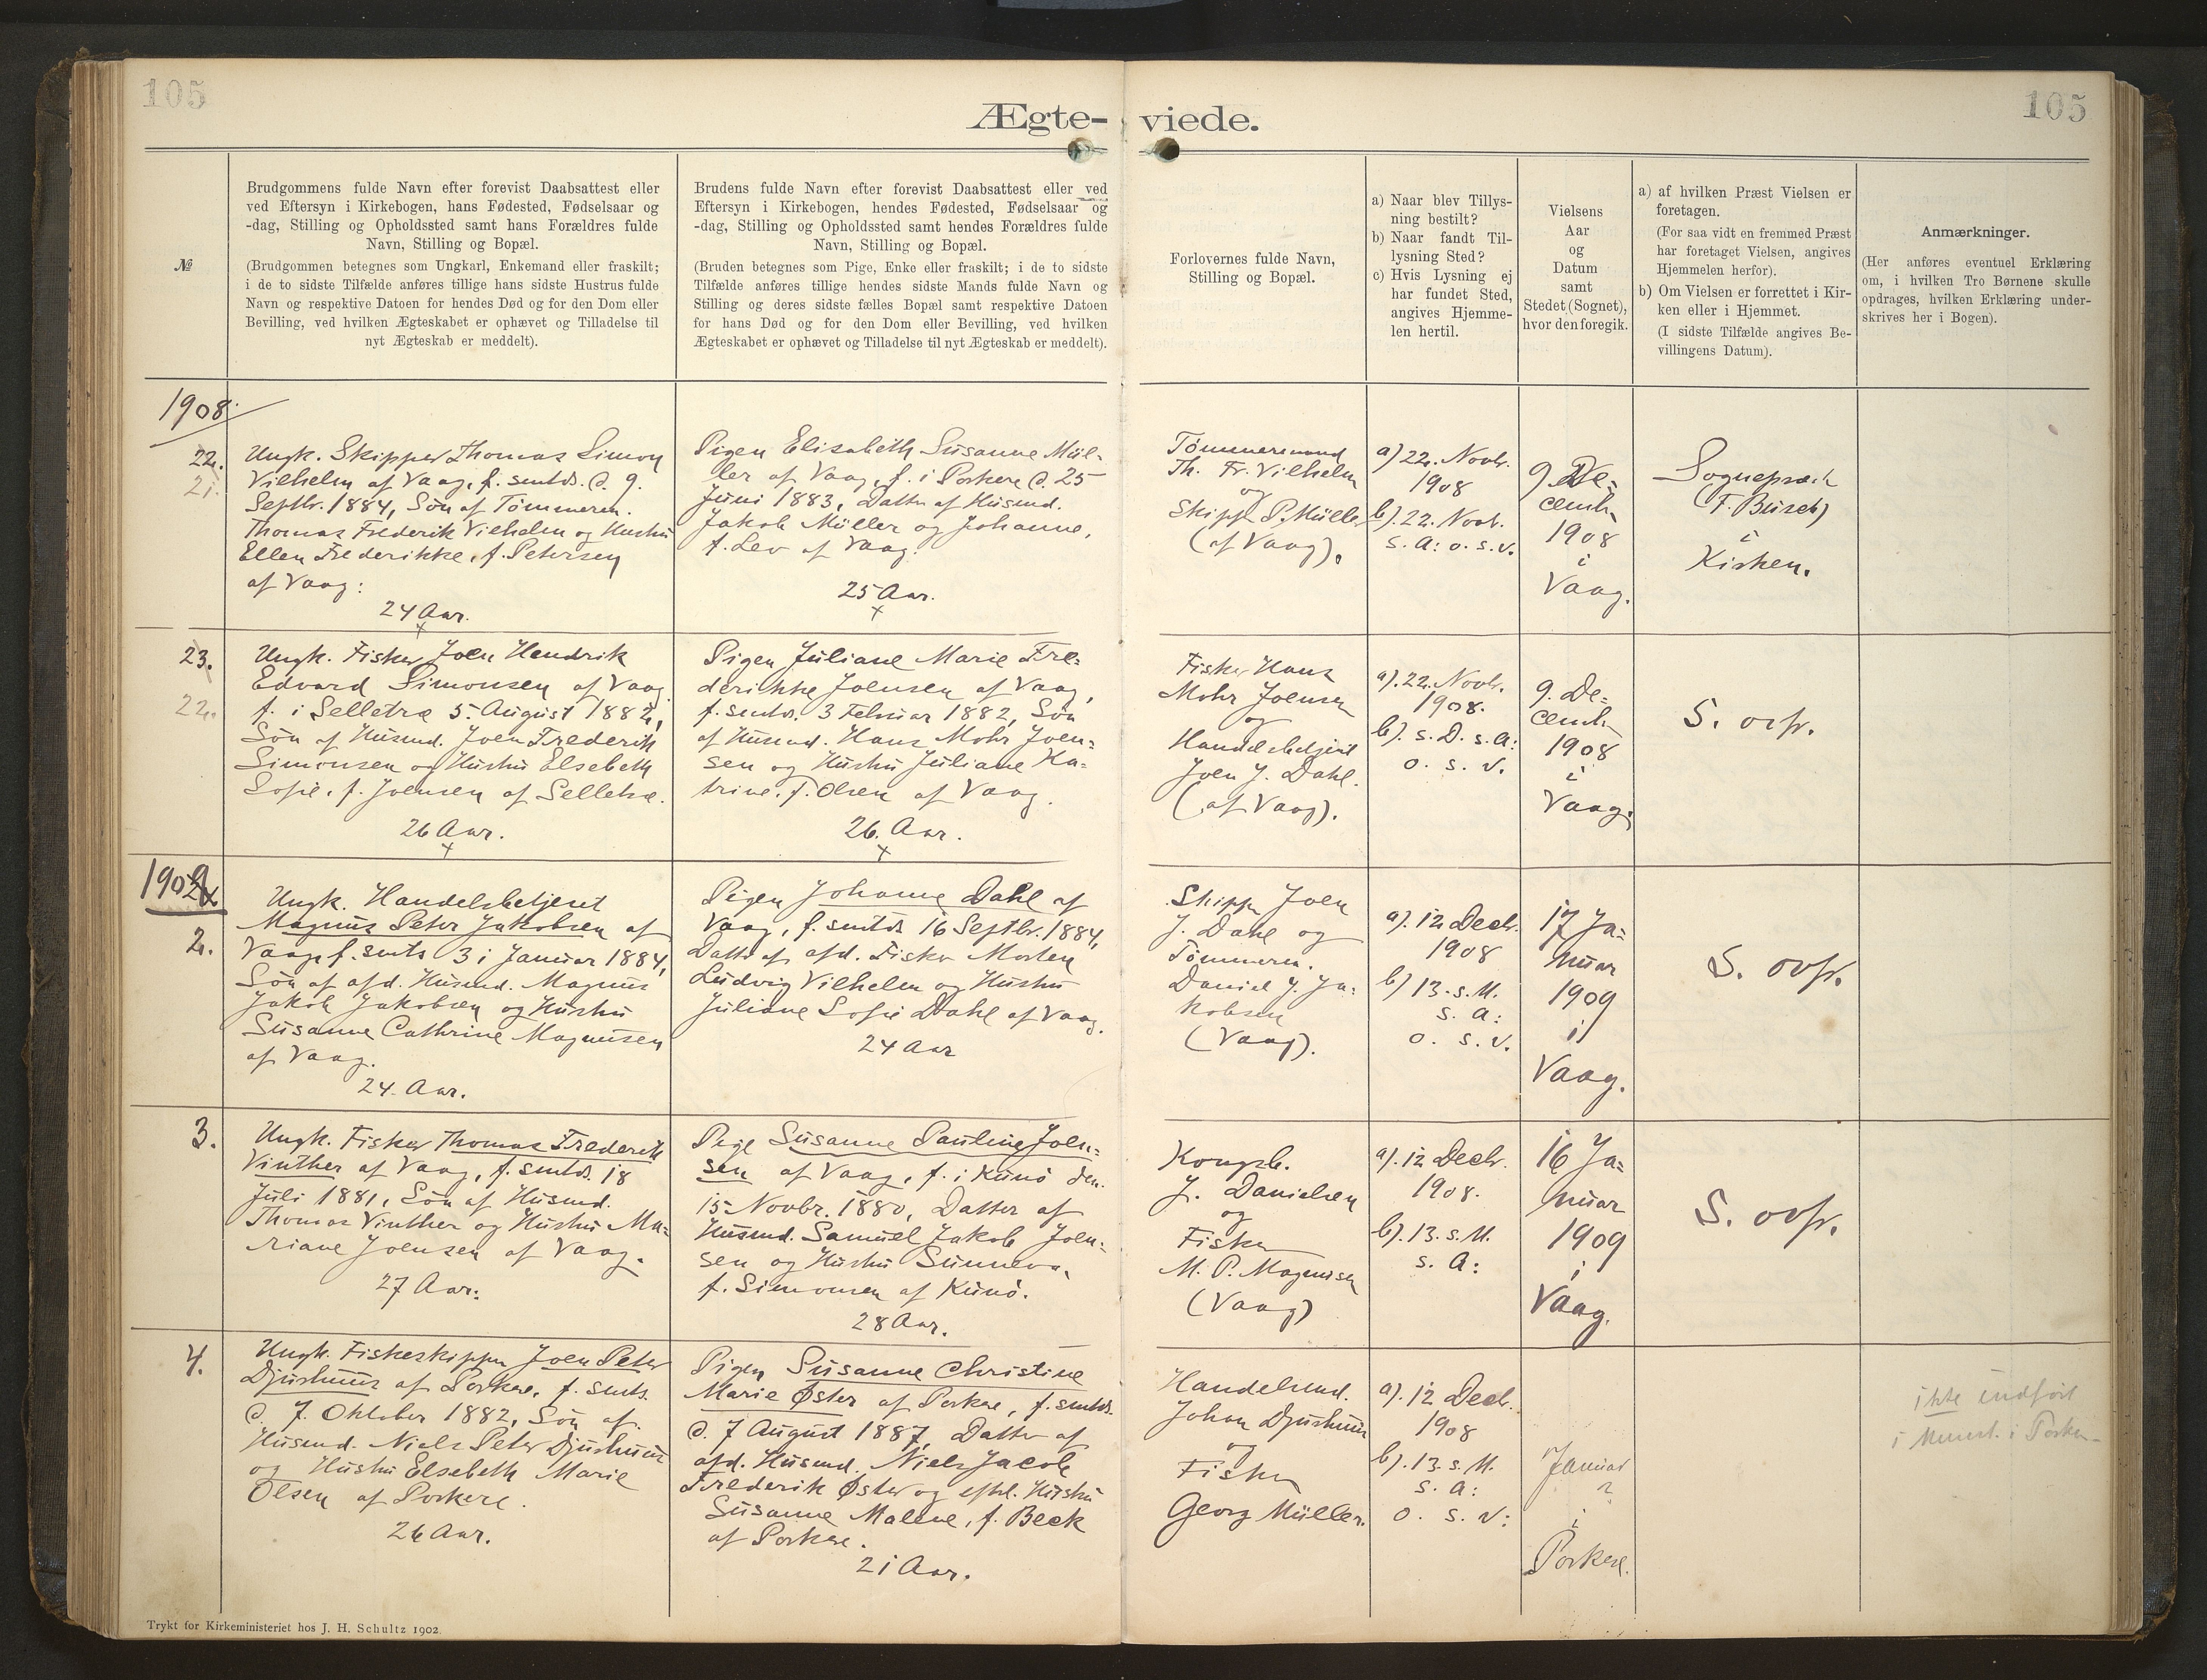 105
105
Ægte- viede.
№
Brudgommens fulde Navn efter forevist Daabsattest eller
ved Eftersyn i Kirkebogen, hans Fødested, Fødselsaar og
-dag, Stilling og Opholdssted samt hans Forældres fulde
Navn, Stilling og Bopæl.
(Brudgommen betegnes som Ungkarl, Enkemand eller fraskilt;
i de to sidste Tilfælde anføres tillige hans sidste Hustrus fulde
Navn og respektive Datoen for hendes Død og for den Dom eller
Bevilling, ved hvilken Ægteskabet er ophævet og Tilladelse til
nyt Ægteskab er meddelt).
Brudens fulde Navn efter forevist Daabsattest eller ved
Eftersyn i Kirkebogen, hendes Fødested, Fødselsaar og
-dag, Stilling og Opholdssted samt hendes Forældres fulde
Navn, Stilling og Bopæl.
(Bruden betegnes som Pige, Enke eller fraskilt; i de to sidste
Tilfælde anføres tillige hendes sidste Mands fulde Navn og
Stilling og deres sidste fælles Bopæl samt respektive Datoen
for hans Død og for den Dom eller Bevilling, ved hvilken
Ægteskabet er ophævet og Tilladelse til nyt Ægteskab er meddelt).
Forlovernes fulde Navn,
Stilling og Bopæl.
a) Naar blev Tillys-
ning bestilt?
b) Naar fandt Til-
lysning Sted?
c) Hvis Lysning ej
har fundet Sted,
angives Hjemme-
len hertil.
Vielsens
Aar
og
Datum
samt
Stedet (Sognet),
hvor den foregik.
a) af hvilken Præst Vielsen er
foretagen.
(For saa vidt en fremmed Præst
har foretaget Vielsen, angives
Hjemmelen herfor).
b) Om Vielsen er forrettet i Kir-
ken eller i Hjemmet.
(I sidste Tilfælde angives Be-
villingens Datum).
Anmærkninger.
(Her anføres eventuel Erklæring
om, i hvilken Tro Børnene skulle
opdrages, hvilken Erklæring under-
skrives her i Bogen).
1908.
22.
21.
Ungk. Skipper Thomas Simon
Vilhelm af Vaag, f. smtds. d. 9.
Septbr. 1884, Søn af Tømmerm.
Thomas Frederik Vilhelm og Hustru
Ellen Frederikke, f. Petersen
af Vaag:
24 Aar.
Pigen Elisabeth Susanne Mül-
ler af Vaag, f. i Porkere d. 25
Juni 1883, Datter af Husmd.
Jakob Müller og Johanne,
f. Lev af Vaag.
25 Aar.
Tømmermand
Th. Fr. Vilhelm
og
Skipper P. Müller
(af Vaag).
a) 22. Novbr.
1908
b). 22. Novb.
s. A: o. s. v.
9 De=
cemb.
1908
i
Vaag.
Sognepræst
(F. Busch)
i
Kirken.
23.
22.
Ungk. Fisker Joen Hendrik
Edvard Simonsen af Vaag,
f. i Selletræ 5. August 1882,
Søn af Husmd. Joen Frederik
Simonsen og Hustru Elsebeth
Sofie, f. Joensen af Selletræ.
26 Aar.
Pigen Juliane Marie Fre-
derikke Joensen af Vaag,
f. smtds. 3 Februar 1882, Søn
af Husmd. Hans Mohr Joen=
sen og Hustru Juliane Ka-
trine, f. Olsen af Vaag.
26. Aar.
Fisker Hans
Mohr Joensen
og
Handelsbetjent
Joen J. Dahl.
(af Vaag).
a). 22. Novbr.
1908.
b). s. D. s. A:
o. s. v.
9. De=
cemb.
1908
i
Vaag.
S. ovfr.
1909
2.
Ungk. Handelsbetjent
Magnus Peter Jakobsen af
Vaag, f. smts 31 Januar 1884,
Søn af afd. Husmd. Magnus
Jakob Jakobsen og Hustru
Susanne Cathrine Magnussen
af Vaag.
24. Aar.
Pigen Johanne Dahl af
Vaag, f. smtds 16 Septbr. 1884,
Datter af afd. Fisker Morten
Ludvig Vilhelm og Hustru
Juliane Sofie Dahl af Vaag.
24 Aar
Skipper Joen
J. Dahl og
Tømmerm.
Daniel J. Ja=
kobsen
(Vaag).
a). 12 Decbr.
1908
b) 13. s. M.
s. A:
o. s. v.
17 Ja=
nuar
1909
i
Vaag.
S. ovfr.
3.
Ungk. Fisker Thomas Frederik
Vinther af Vaag, f. smtds. 18
Juli 1881, Søn af Husmd.
Thomas Vinther og Hustru Ma=
riane Joensen af Vaag.
27 Aar:
Pige Susanne Pauline Joen=
sen af Vaag, f. i Kunø den
15 Novbr. 1880, Datter af
Husmd. Samuel Jakob Joen=
sen og Hustru Sunneva,
f. Simonsen af Kunø.
28 Aar.
Kongsb.
J. Danielsen
og
Fisker
M. P. Magnussen
(Vaag)
a). 12 Decbr.
1908.
b). 13. s. M.
s. A:
16 Ja=
nuar
1909
i
Vaag.
S. ovfr.
4.
Ungk. Fiskeskipper Joen Peter
Djurhuus af Porkere, f. smts.
d. 7. Oktober 1882, Søn af
Husmd. Niels Peter Djurhuus
og Hustru Elsebeth Marie
Olsen af Porkere.
26 Aar.
Pigen Susanne Christine
Marie Øster af Porkere, f. smtds.
d. 7 August 1887, Datter af
afd. Husmd. Niels Jacob
Frederik Øster og eftl. Hustru
Susanne Malene, f. Beck
af Porkere.
21 Aar.
Handelsmd.
Johan Djurhuus
og
Fisker
Georg Müller.
a). 12 Decb.
1908
b). 13. s. M.
s. A:
o. s. v:
Januar
?
i
Porkere.
ikke indført
i Minist. i Porkere
Trykt for Kirkeministeriet hos J. H. Schultz 1902.